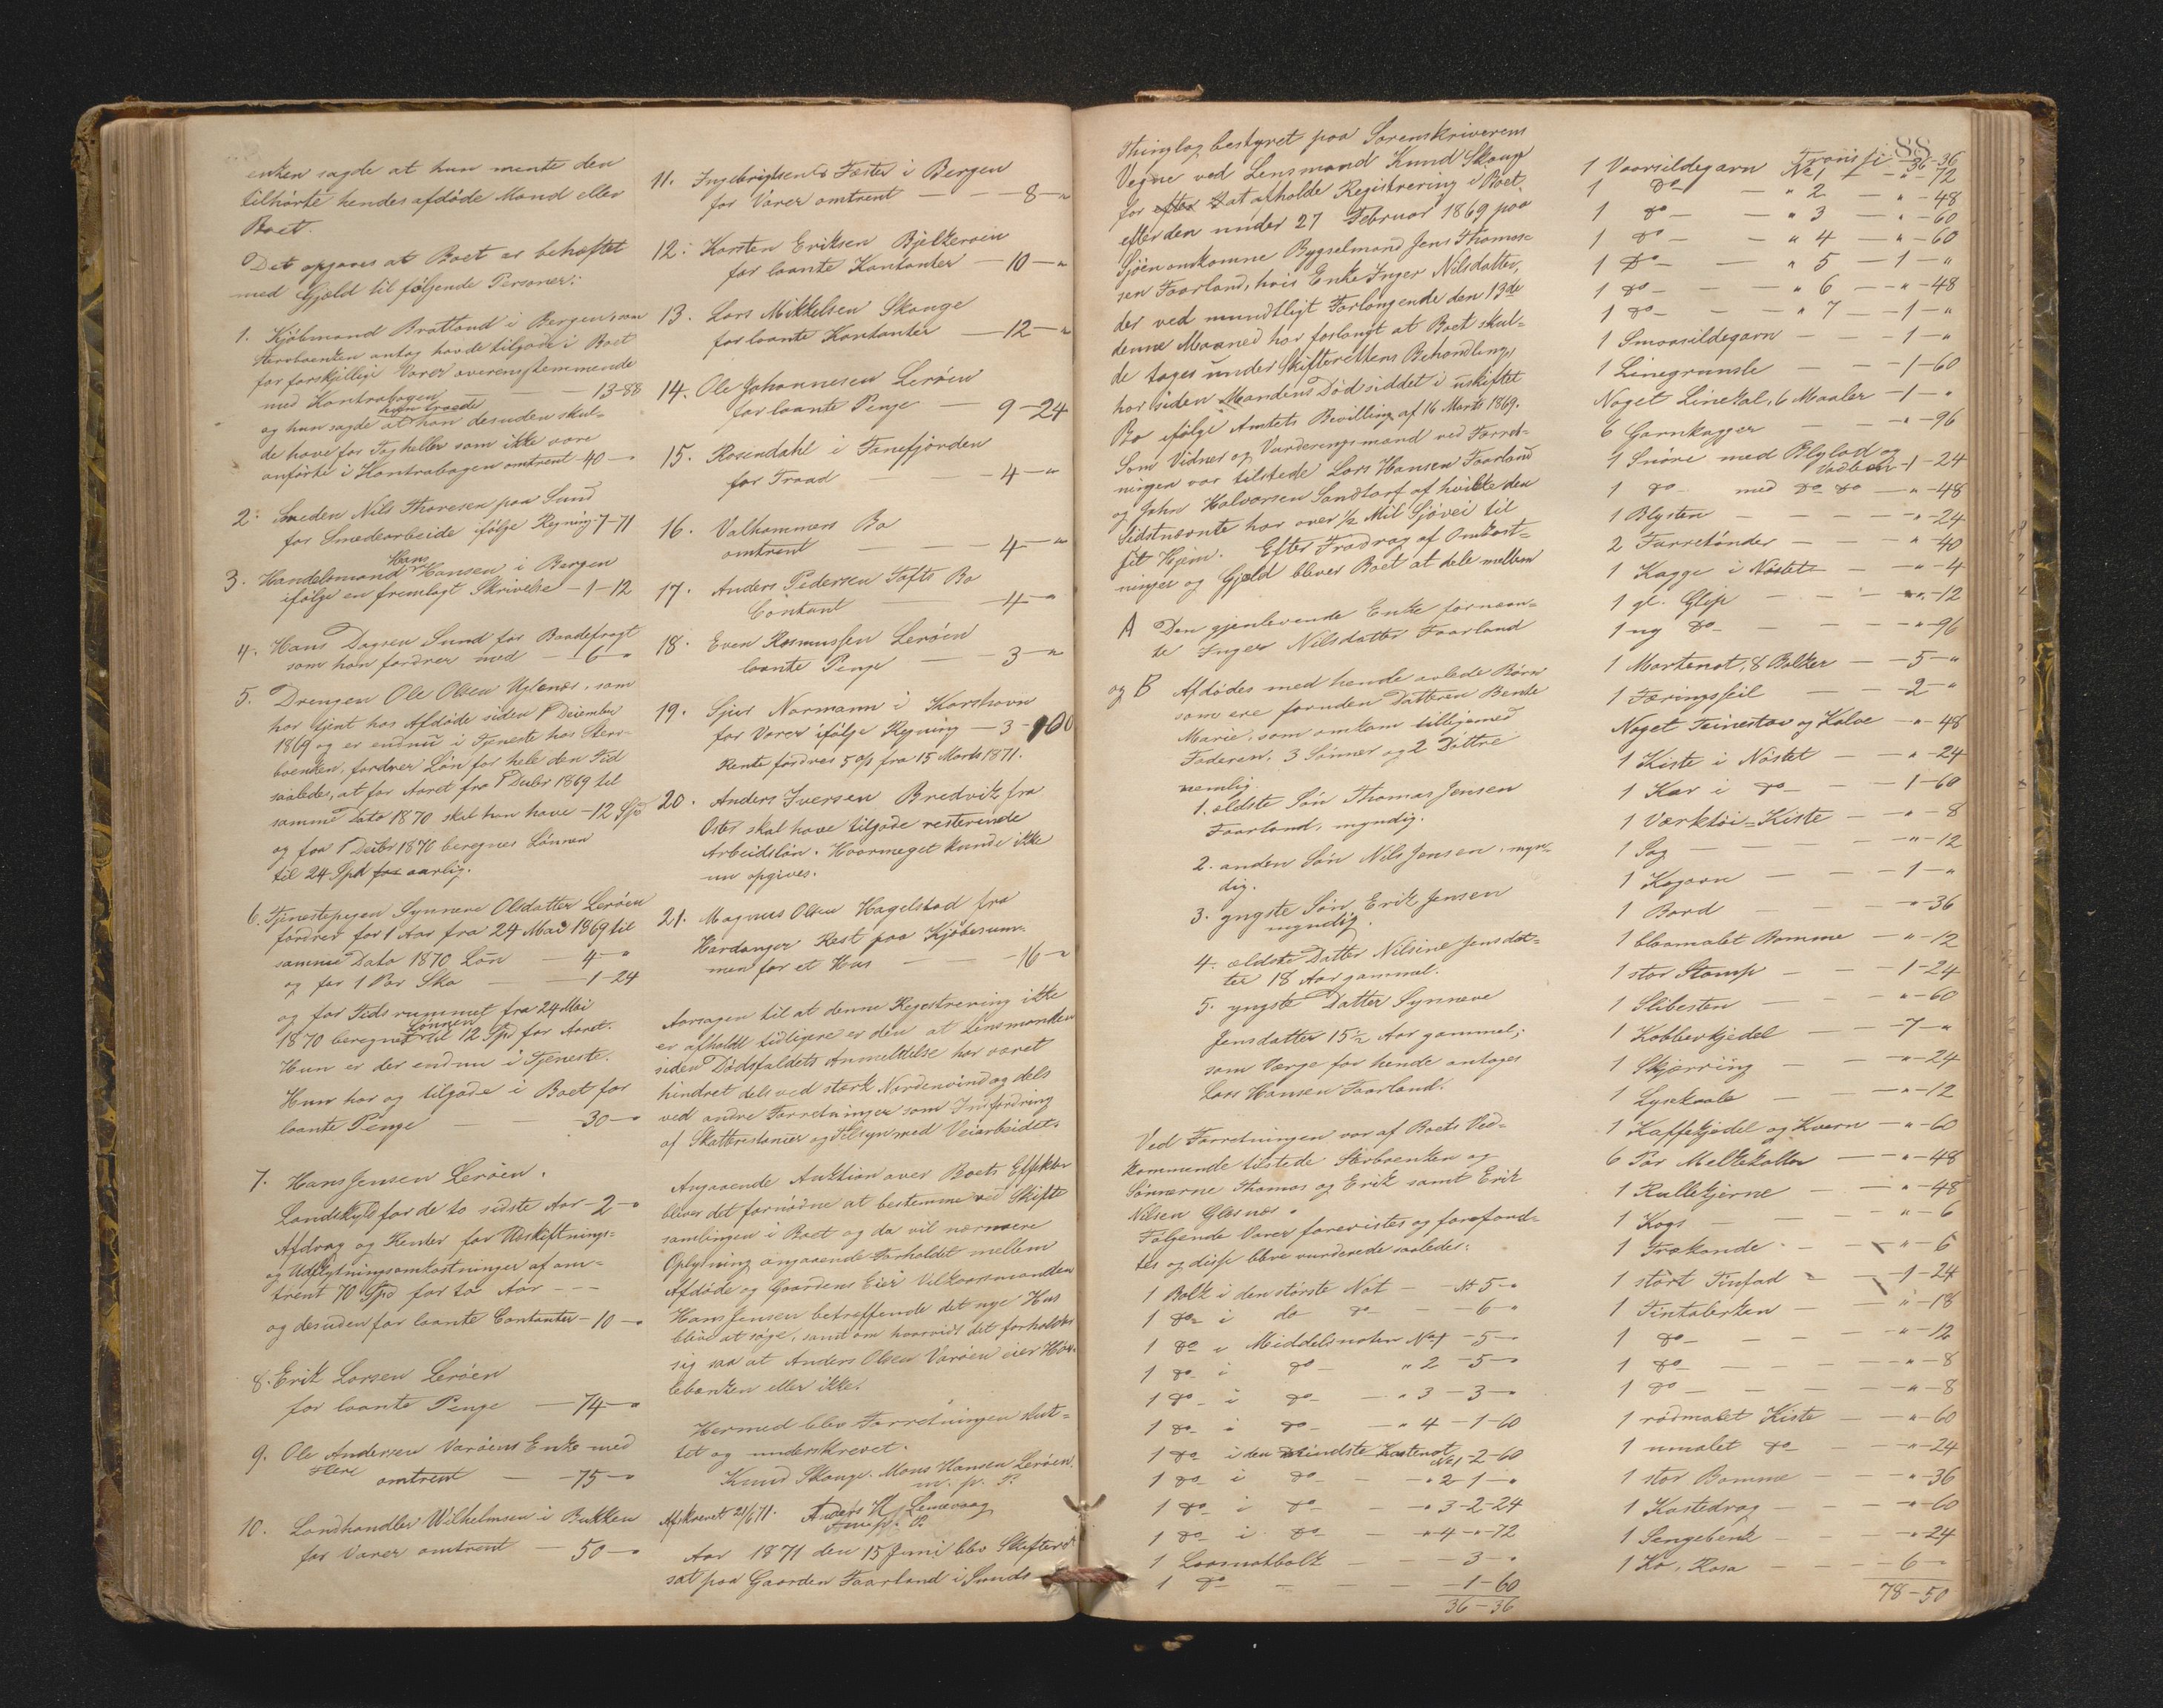 enken sagde at hun mente den
tilhørte hendes afdøde Mand eller
Boet.
Det opgaves at Boet er behæftet
med Gjæld til følgende Personer:
1. Kjøbmand Brattland i Bergen, som
Stervboenken antog havde tilgode i Boet
for forskjellige Varer overensstemmende
med Kontrabogen — 13-88
og hun sagde at han desuden skul-
hun troede
de have for Tagheller som ikke vare
anførte i Kontrabogen omtrent 40 — "
2. Smeden Nils Thoresen paa Sund
for Smedearbeide ifølge Regning 7-71
3. Handelsmand Hans Hansen i Bergen
ifølge en fremlagt Skrivelse — 1-12
4. Hans Dagsen Sund for Baadefragt
som han fordrer med — 6 — "
5. Drengen Ole Olsen Uglenæs, som
har tjent hos Afdøde siden 1 Deiember
1869 og er endnu i Tjeneste hos Sterv-
boenken, fordrer Løn for hele den Tid
saaledes, at for Aaret fra 1 Decbr 1869 til
samme Dato 1870 skal han have — 12 Spd
og fra 1 Decbr 1870 beregnes Lønnen
til 24 Spd for aarlig.
6. Tjenestepigen Synneve Olsdatter Lerøen
fordrer for 1 Aar fra 24 Mai 1869 til
samme Dato 1870 Løn — 4 — "
og for 1 Par Sko — 1-24
og for Tidsrummet fra 24 Mai
1870 beregnet Lønnen til 12 Spd for Aaret.
Hun er der endnu i Tjeneste.
Hun har og tilgode i Boet for
laante Penge — 30 — "
7. Hans Jensen Lerøen.
Landskyld for de to sidste Aar — 2 — "
Afdrag og Renter for Udskiftnings-
og Udflytningsomkostninger af om-
trent 70 Spd for to Aar — —
og desuden for laante Contanter — 10 — "
8. Erik Larsen Lerøen
for laante Penge — 74 — "
9. Ole Andersen Varøens Enke med
Flere omtrent — 75 — "
10. Landhandler Wilhelmsen i Bukken
for Varer omtrent — 50 — "
11. Ingebrigtsens Fæster i Bergen
for Varer omtrent — — 8 — "
12. Karsten Eriksen Bjelkerøen
for laante Kontanter — 10 — "
13. Lars Mikkelsen Skauge
for laante Kontanter — 12 — "
14. Ole Johannesen Lerøen
for laante Penge — 9-24
15. Rosendahl i Fanefjorden
for Traad — 4 — "
16. Valhammers Bo
omtrent — 4 — "
17. Anders Pedersen Tofts Bo
Contant — 4 — "
18. Even Rasmussen Lerøen
laante Penge — 3 — "
19. Sjur Normann i Korshavn
for Varer ifølge Regning — 3-100
Rente fordres 5 % fra 15 Marts 1871.
20. Anders Iversen Bredvik fra
Oster skal have tilgode resterende
Arbeidsløn. Hvormeget kunde ikke
nu opgives.
21. Magnus Olsen Hagelstad fra
Hardanger Rest paa Kjøbesum-
men for et Hus — 16 — "
Aarsagen til at denne Registrering ikke
er afholdt tidligere er den at Lensmanden
siden Dødsfaldets Anmeldelse har været
hindret dels ved stærk Nordenvind og dels
ved andre Forretninger som Indfordring
af Skatterestancer og Tilsyn med Veiarbeidet.
Angaaende Auktion over Boets Effekter
bliver det fornødne at bestemme ved Skifte
samlingen i Boet og da vil nærmere
Oplysning angaaende Forholdet mellem
Afdøde og Gaardens Eier Vilkaarsmanden
Hans Jensen betræffende det nye Hus
blive at søge, samt om hvorvidt det forholder
sig saa at Anders Olsen Varøen eier Høv-
lebænken eller ikke.
Hermed blev Forretningen slut-
tet og underskrevet.
Knud Skauge. Mons Hansen Lerøen
m. p. P.
Afskrevet 21/6 71. Anders H Lenevaag
m. p. P.
Aar 1871 den 15 Juni blev Skifteret
sat paa Gaarden Faarland i Sunds
88
Thinglag bestyret paa Sorenskriverens
Vegne ved Lensmand Knud Skauge
for efter D at afholde Registrering i Boet
efter den under 27 Februar 1869 paa
Sjøen omkomne Bygselmand Jens Thomas-
sen Faarland, hvis Enke Inger Nilsdatter,
der ved mundtligt Forlangende den 13de
denne Maaned har forlangt at Boet skul-
de tages under Skifterettens Behandling,
har siden Mandens Død siddet i uskiftet
Bo ifølge Amtets Bevilling af 16 Marts 1869.
Som Vidner og Vurderingsmænd ved Forret-
ningen var tilstede Lars Hansen Faarland
og John Halvorsen Sandtorf af hvilke den
Sidstnævnte har over 1/2 Mil Sjøvei til
sit Hjem. Efter Fradrag af Omkost-
ninger og Gjæld bliver Boet at dele mellem
A Den gjenlevende Enke fornævn-
te Inger Nilsdatter Faarland
og B Afdødes med hende avlede Børn
som ere foruden Datteren Bente
Marie, som omkom tilligemed
Faderen, 3 Sønner og 2 Døttre
nemlig.
1. ældste Søn Thomas Jensen
Faarland, myndig.
2. anden Søn Nils Jensen, myn-
dig.
3. yngste Søn Erik Jensen
myndig.
4. ældste Datter Nilsine Jensdat-
ter 18 Aar gammel.
5. yngste Datter Synneve
Jensdatter 15 1/2 Aar gammel;
som Værge for hende antoges
Lars Hansen Faarland.
Ved Forretningen var af Boets Ved-
kommende tilstede Stervboenken og
Sønnerne Thomas og Erik samt Erik
Nilsen Glesnæs.
Følgende Varer forevistes og forefand-
tes og disse bleve vurderede saaledes:
1 Bolk i den største Not — 5 — "
1 do i do do — 6 — "
1 do i Middelsnoten No 1 — 5 — "
1 do i do " 2 — 5 — "
1 do i do " 3 — 3 — "
1 do i do " 4 — 1-60
1 do i den mindste Kastenot No 1 — 2-60
1 do i do " 2 — 1 — "
1 do i do " 3 — 2-24
1 do i do " 4 — " — 72
1 Laasnotbolk — 3 — "
1 do — 1-60
36-36
Transp: 36-36
1 Vaarsildegarn No 1 — " — 72
1 do — " 2 — " — 48
1 do — " 3 — " — 60
1 do — " 4 — " — 60
1 Do — " 5 — 1 — "
1 do — " 6 — " — 48
1 do — " 7 — 1 — "
1 Smaasildegarn — 1 — "
1 Linegrunsle — 1-60
Noget Linekal, 6 Maaler — 1 — "
6 Garnkagger — " — 96
1 Snøre med Blylod og
Vadbein — 1-24
1 do med do do — " — 48
1 Blysten — " — 24
2 Farretønder — " — 40
1 Kagge i Nøstet — " — 4
1 gl. Glip — " — 12
1 ny do — " — 96
1 Mortenot, 8 Bolker — 5 — "
1 Færingsseil — 2 — "
Noget Teinestav og Kalve — " — 48
1 Kiste i Nøstet — " — 24
1 Kar i do — 1-60
1 Værktøi-Kiste — " — 8
1 Sag — " — 12
1 Kogovn — 1 — "
1 Bord — " — 36
1 blaamalet Bomme — " — 12
1 stor Stamp — 1-24
1 Slibesten — " — 60
1 Kobberkjedel — 7 — "
1 Skjærring — " — 24
1 Lysekaale — " — 12
1 Kaffekjedel og Kværn — " — 60
6 Par Melkekoller — " — 48
1 Rullekjerne — " — 48
1 Kogs — " — 6
1 Trækande — " — 6
1 stort Tinfad — 1-24
1 Tintalerken — " — 18
1 do — " — 12
1 do — " — 8
1 do — " — 8
1 rødmalet Kiste — " — 60
1 umalet do — " — 24
1 stor Bomme — " — 36
1 Kastedrag — " — 60
1 Sengebenk — " — 24
1 Ko, Rosa — 6 — "
78-50